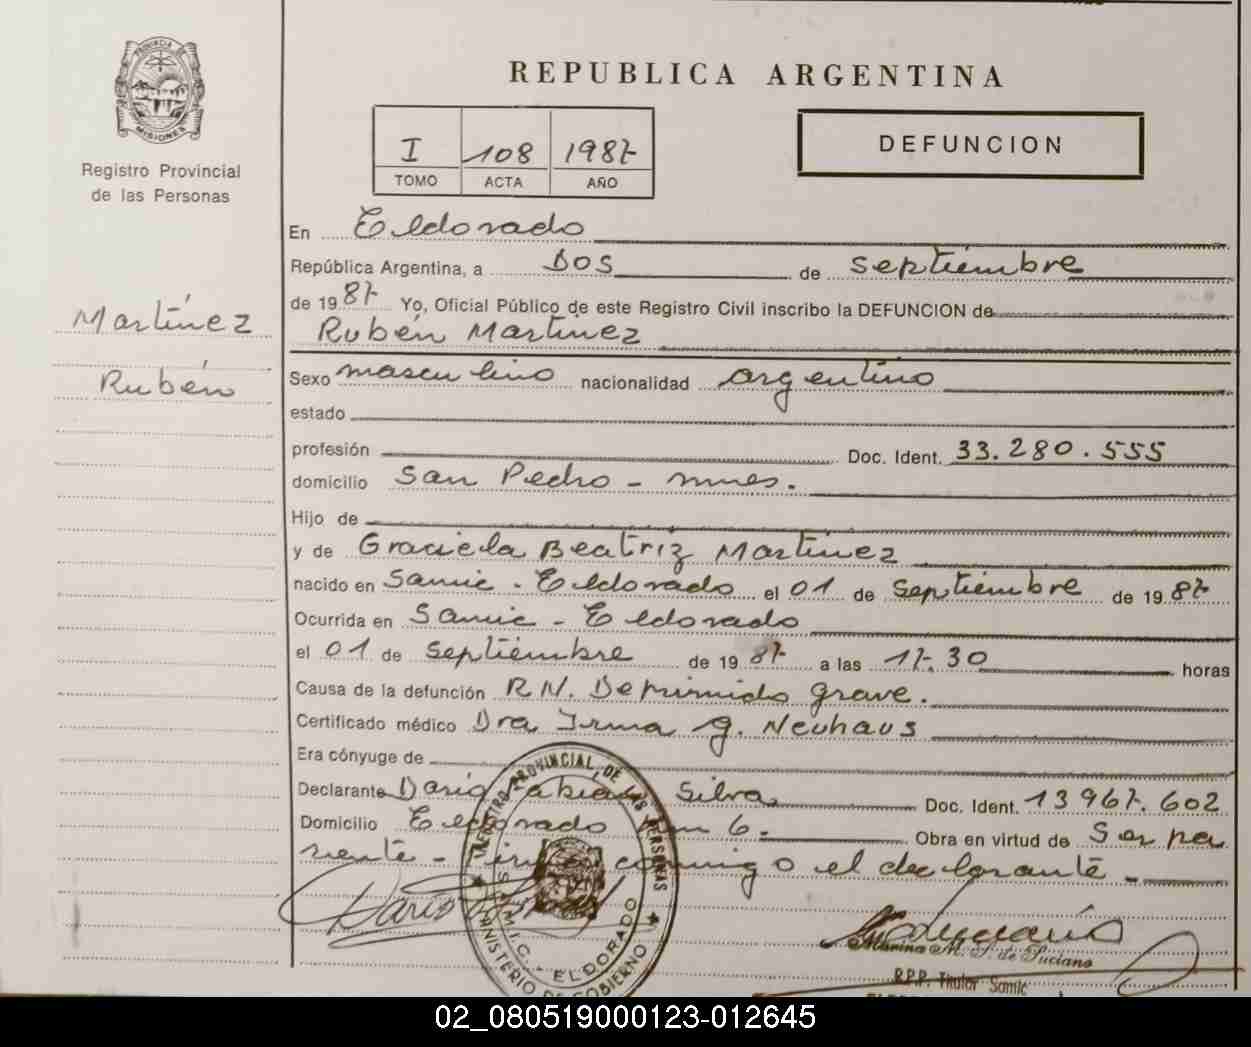 PROVINCIA DE
MISIONES
Registro Provincial
de las Personas
Martínez
Rubén
REPUBLICA ARGENTINA
I 108 1987
TOMO ACTA AÑO
DEFUNCION
En Eldorado
República Argentina, a Dos de septiembre
de 1987 Yo, Oficial Público de este Registro Civil inscribo la DEFUNCION de
Rubén Martínez
Sexo masculino nacionalidad argentino
estado
profesión Doc. Ident. 33.280.555
domicilio San Pedro - mnes.
Hijo de
y de Graciela Beatriz Martínez
nacido en Samic - Eldorado el 01 de septiembre de 1987
Ocurrida en Samic - Eldorado
el 01 de septiembre de 1987 a las 17.30 horas
Causa de la defunción R N. Deprimido grave.
Certificado médico Dra Irma G. Neuhaus
Era cónyuge de
Declarante Dario Fabián Silva Doc. Ident. 13967.602
Domicilio Eldorado km 6. Obra en virtud de Ser pa
riente - Firma conmigo el declarante -
REGISTRO PROVINCIAL DE LAS PERSONAS
S.A.M.I.C. - ELDORADO
MINISTERIO DE GOBIERNO
Marina M. S. de Luciano
R.P.P. Titular Samic
02_080519000123-012645